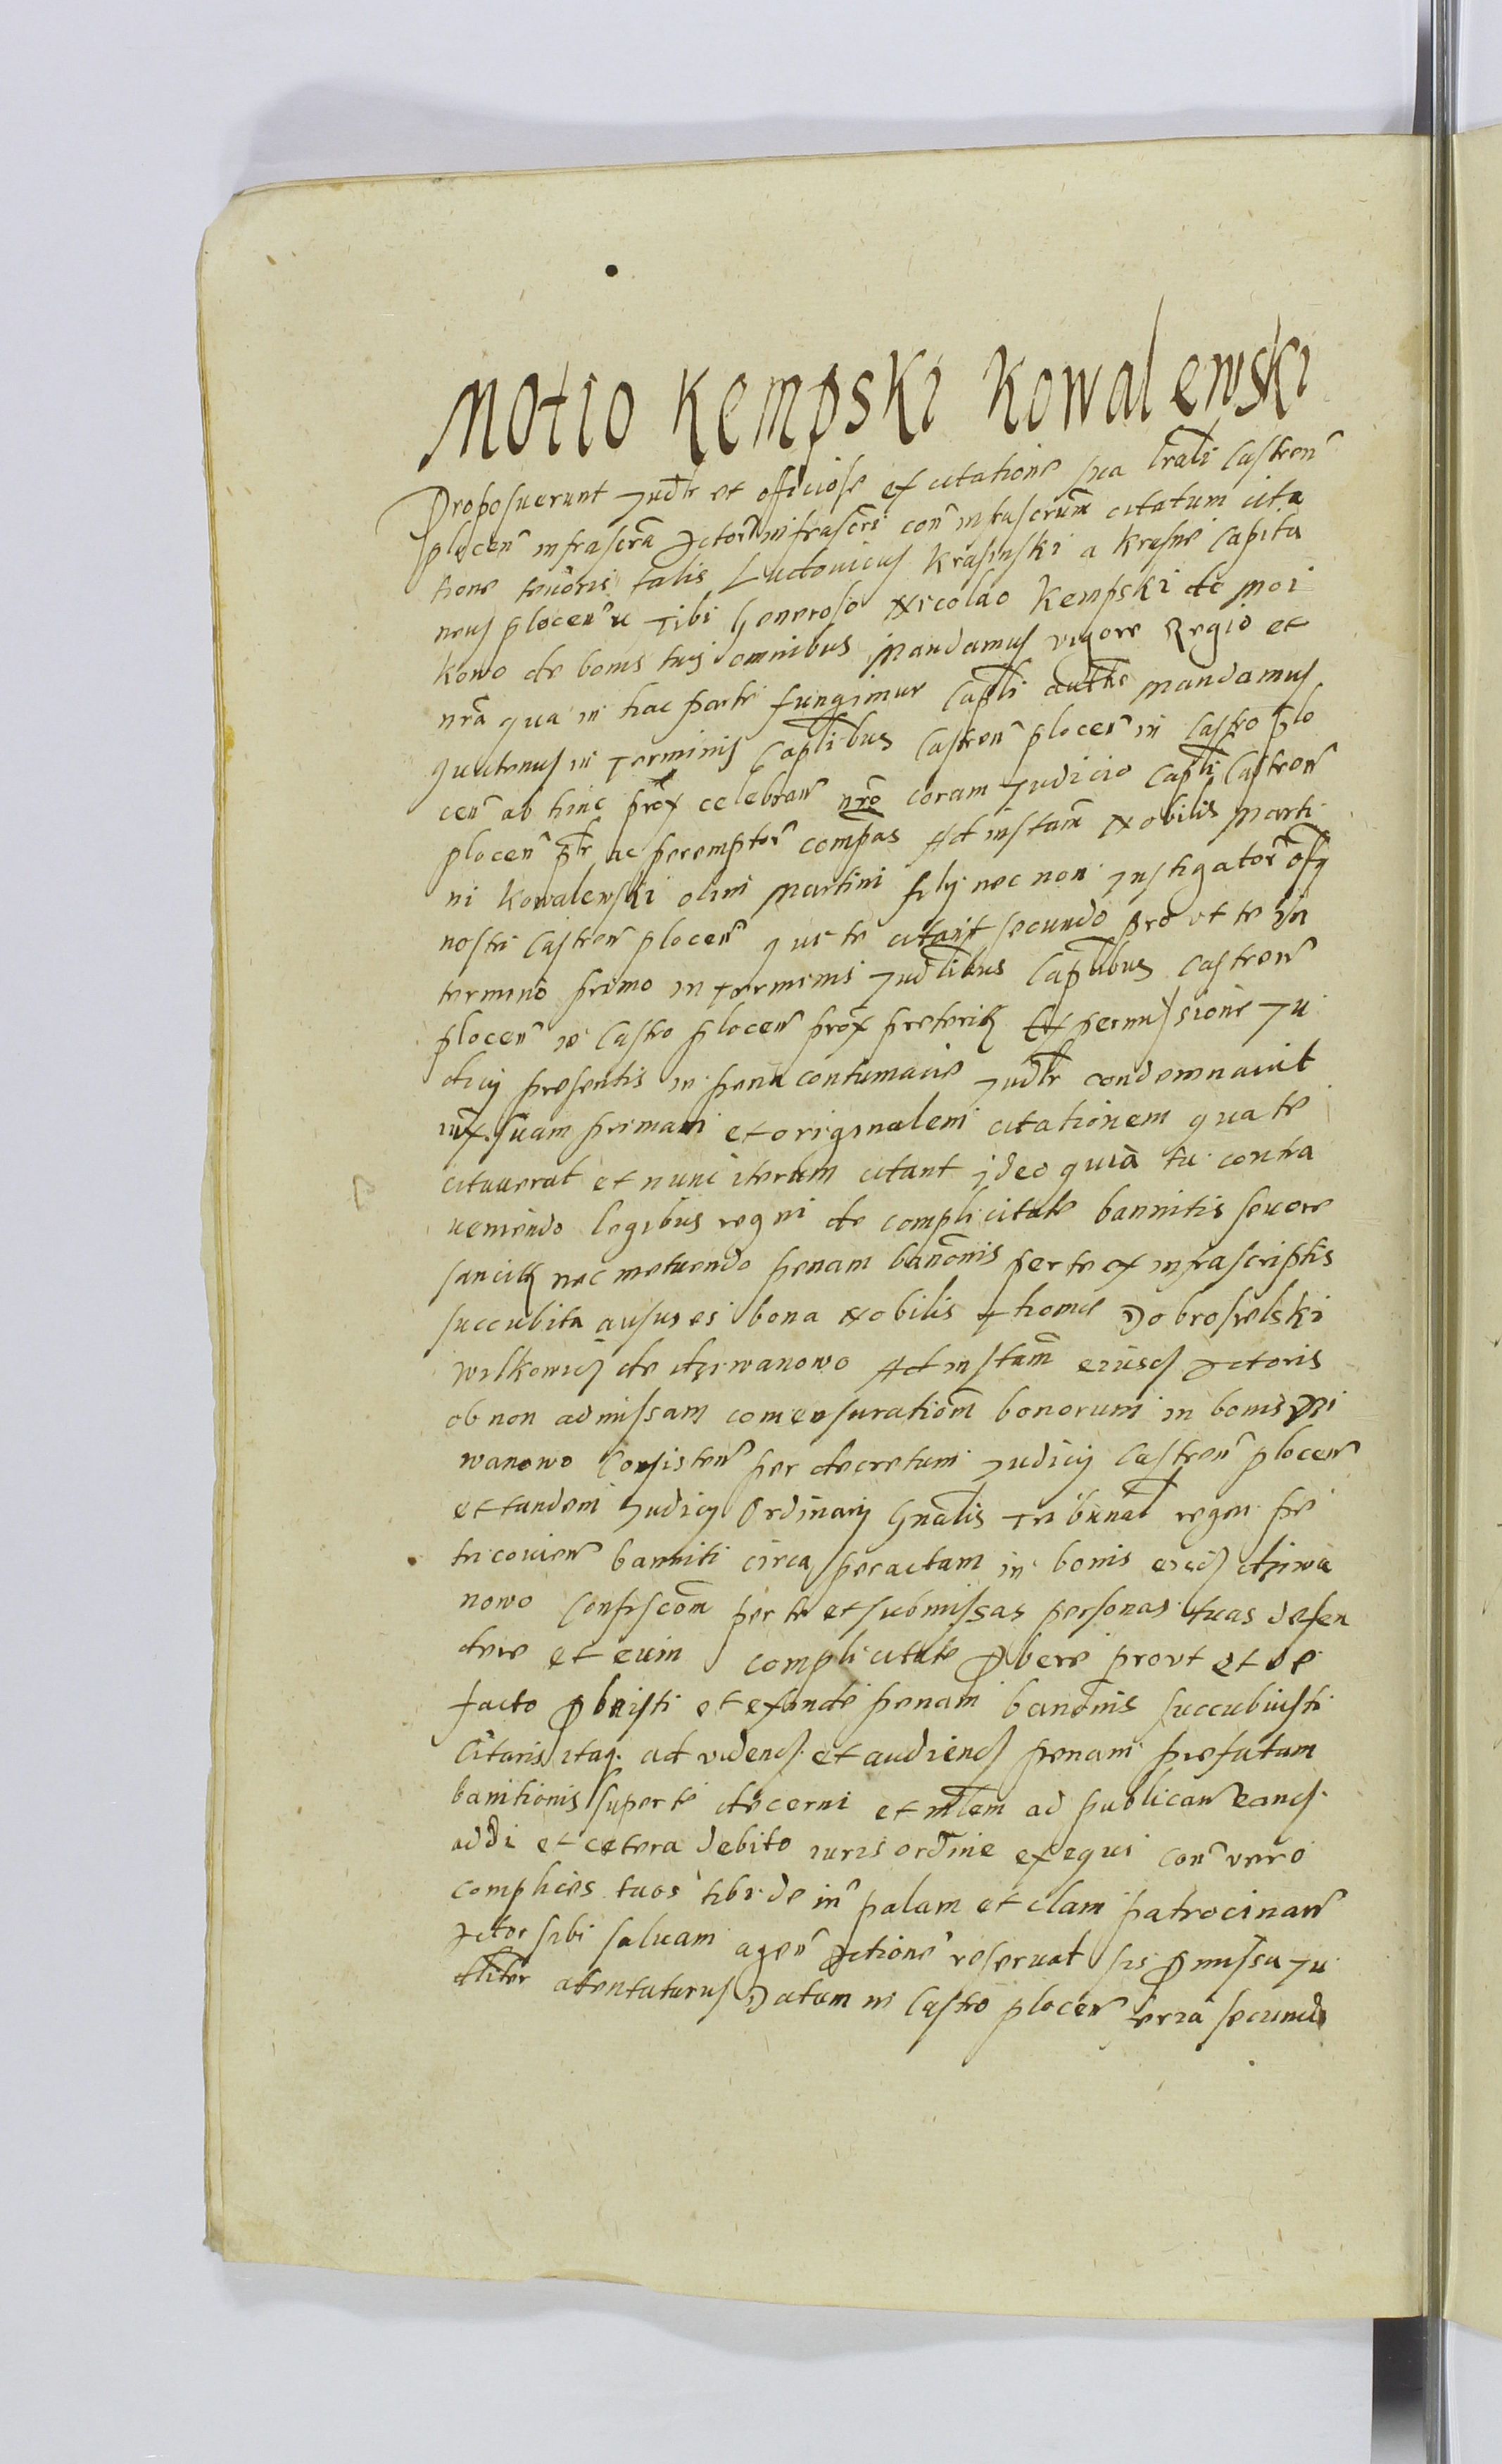 Motio Kempski Kowalewski
Proposuerunt Judtr et officiose ex citatione sua lrali Castren
plocen infrascra Actor infrascri con infrascrum citatum cita
tione tenoris talis Ludouicus Krasinski a Krasne Capita
neus plocen Tibi Generoso Nicolao Kempski de Moi
kowo de bonis tuis omnibus Mandamus vigore Regio et
nra qua in hac parte fungimur Capli autte mandamus
quatenus in Terminis Caplibus Castren plocen in Castro plo
cen ab hinc prox celebran nro coram Judicio Capli Castren
plocen ptr ac peremptor compas Ad instam Nobilis Marti
ni Kowalewski olim Martini filij nec non Instigator offi
nostri Castren plocen qui te citant secundo pro ut te in
termino primo in Terminis Judlibus Caplibus Castren
plocen in Castro plocen prox preteritis Ex permissione Ju
dicij presentis in pena contumacie Judtr condemnauit
iux suam primam et originalem citationem qua te
citauerat et nunc iterum citant ideo quia tu contra
ueniendo legibus regni de complicitate bannitis seuere
sancitis nec metuendo penam banonis per te ex infrascriptis
succubita ausus es bona Nobilis Thome Dobrosielski
Wilkowicz de dziwanowo Ad instam eiusd Actoris
ob non admissam comensurationem bonorum in bonis Dzi
wanowo Consisten per decretum Judicij Castren plocen
et tandem Judicij Ordinarij Gnalis Tribunal regni pe
tricouien banniti circa peractam in bonis eisd dziwa
nowo Confiscom per te et submissas personas tuas defen
dere et cum complicitate Phbere prout et de
facto Phbuisti et exinde penam banonis succubuisti
Citaris itaq. ad vidend et audiend penam prefatam
banitionis super te decerni et mlem ad publican eand
addi et cetera debito iuris ordine exequi con vero
complices tuos tibi de in palam et clam patrocinan
Actor sibi saluam agen Actione reseruat sis Pmissa Ju
dliter atentaturus Datum in Castro plocen feria secunda